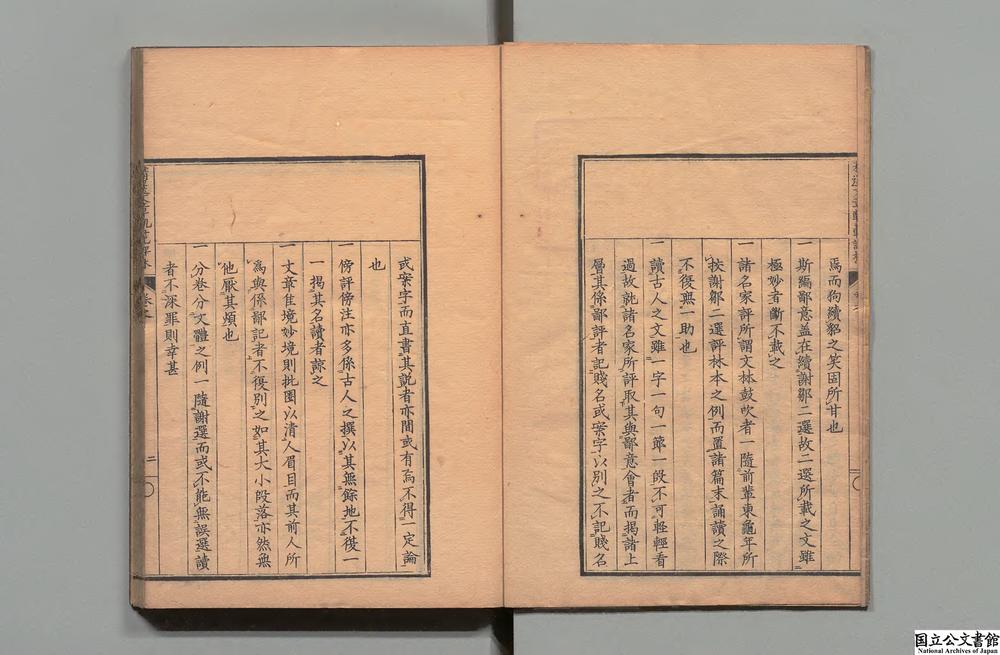 焉而狗續貂之笑固所甘也
一 斯編鄙意蓋在續謝鄒二選故二選所載之文雖
極妙者斷不載之
一 諸名家評所謂文林鼓吹者一隨前輩東龜年所
挾謝鄒二選評林本之例而置諸篇末誦讀之際
不復無一助也
一 讀古人之文雖一字一句一節一段不可輕輕看
過故就諸名家所評取其與鄙意會者而揭諸上
層其係鄙評者記賤名或案字以別之不記賤名
或案字而直書其説者亦間或有焉不得一定論
也
一 傍評傍注亦多係古人之撰以其無餘地不復一
一揭其名讀者諒之
一 文章佳境妙境則批圈以清人眉目而其前人所
為與係鄙記者不復別之如其大小段落亦然無
他厭其煩也
一 分卷分文體之例一隨謝選而或不能無誤選讀
者不深罪則幸甚
二
国立公文書館
National Archives of Japan